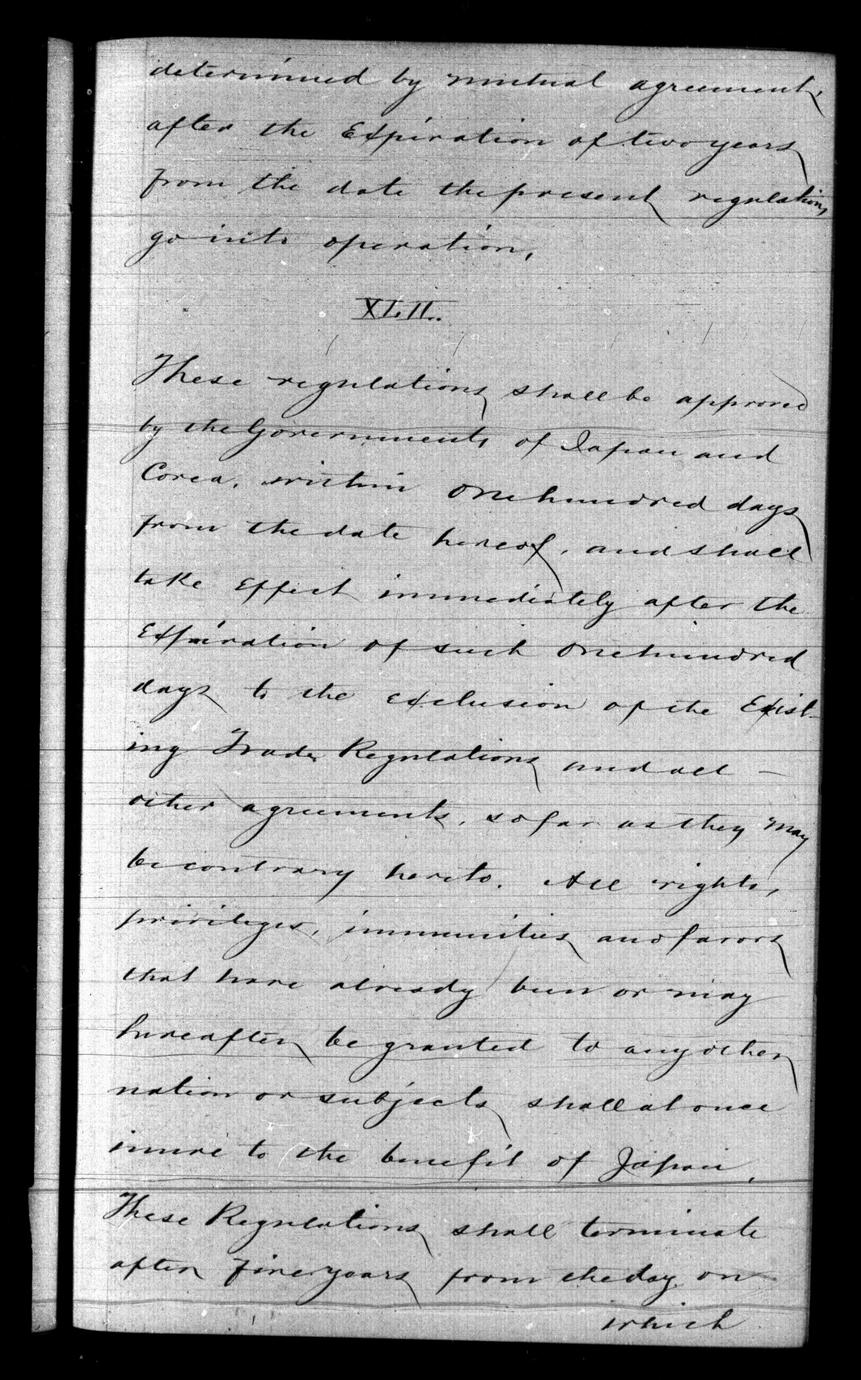 determined by mutual agreement,
after the Expiration of two years
from the date the present regulations
go into operation,
XLII.
These regulations shall be approved
by the Governments of Japan and
Corea, within One hundred days
from the date hereof, and shall
take Effect immediately after the
Expiration of such One hundred
days to the exclusion of the Exist-
ing Trade Regulations and all —
other agreements, so far as they may
be contrary hereto. All rights,
privileges, immunities and favors
that have already been or may
hereafter be granted to any other
nation or subjects shall at once
inure to the benefit of Japan.
These Regulations shall terminate
after Five years from the day on
which